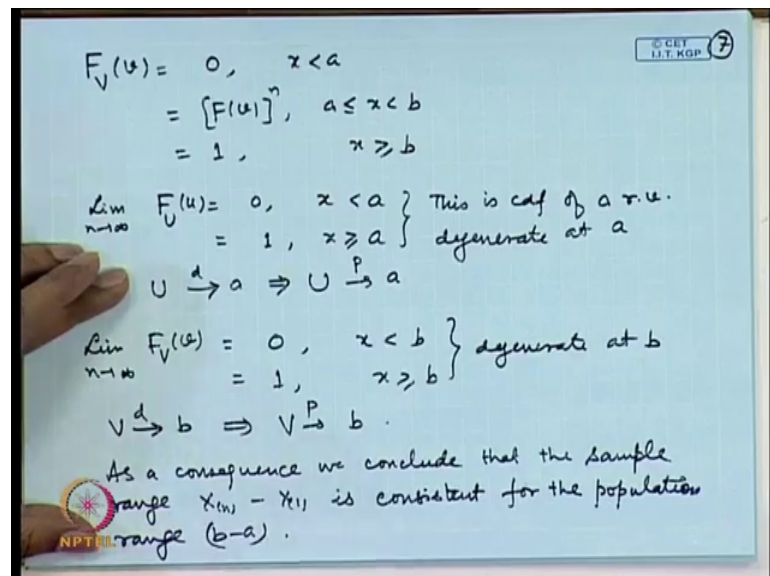 © CET
I.I.T. KGP
7
F_V(v) = 0, x < a
= [F(v)]^n, a ≤ x < b
= 1, x ≥ b
Lim n→∞ F_U(u) = 0, x < a } This is cdf of a r.v.
= 1, x ≥ a } degenerate at a
U →^d a ⇒ U →^P a
Lim n→∞ F_V(v) = 0, x < b } degenerate at b
= 1, x ≥ b
V →^d b ⇒ V →^P b .
As a consequence we conclude that the sample
range X_(n) - X_(1) is consistent for the population
range (b-a) .
NPTEL